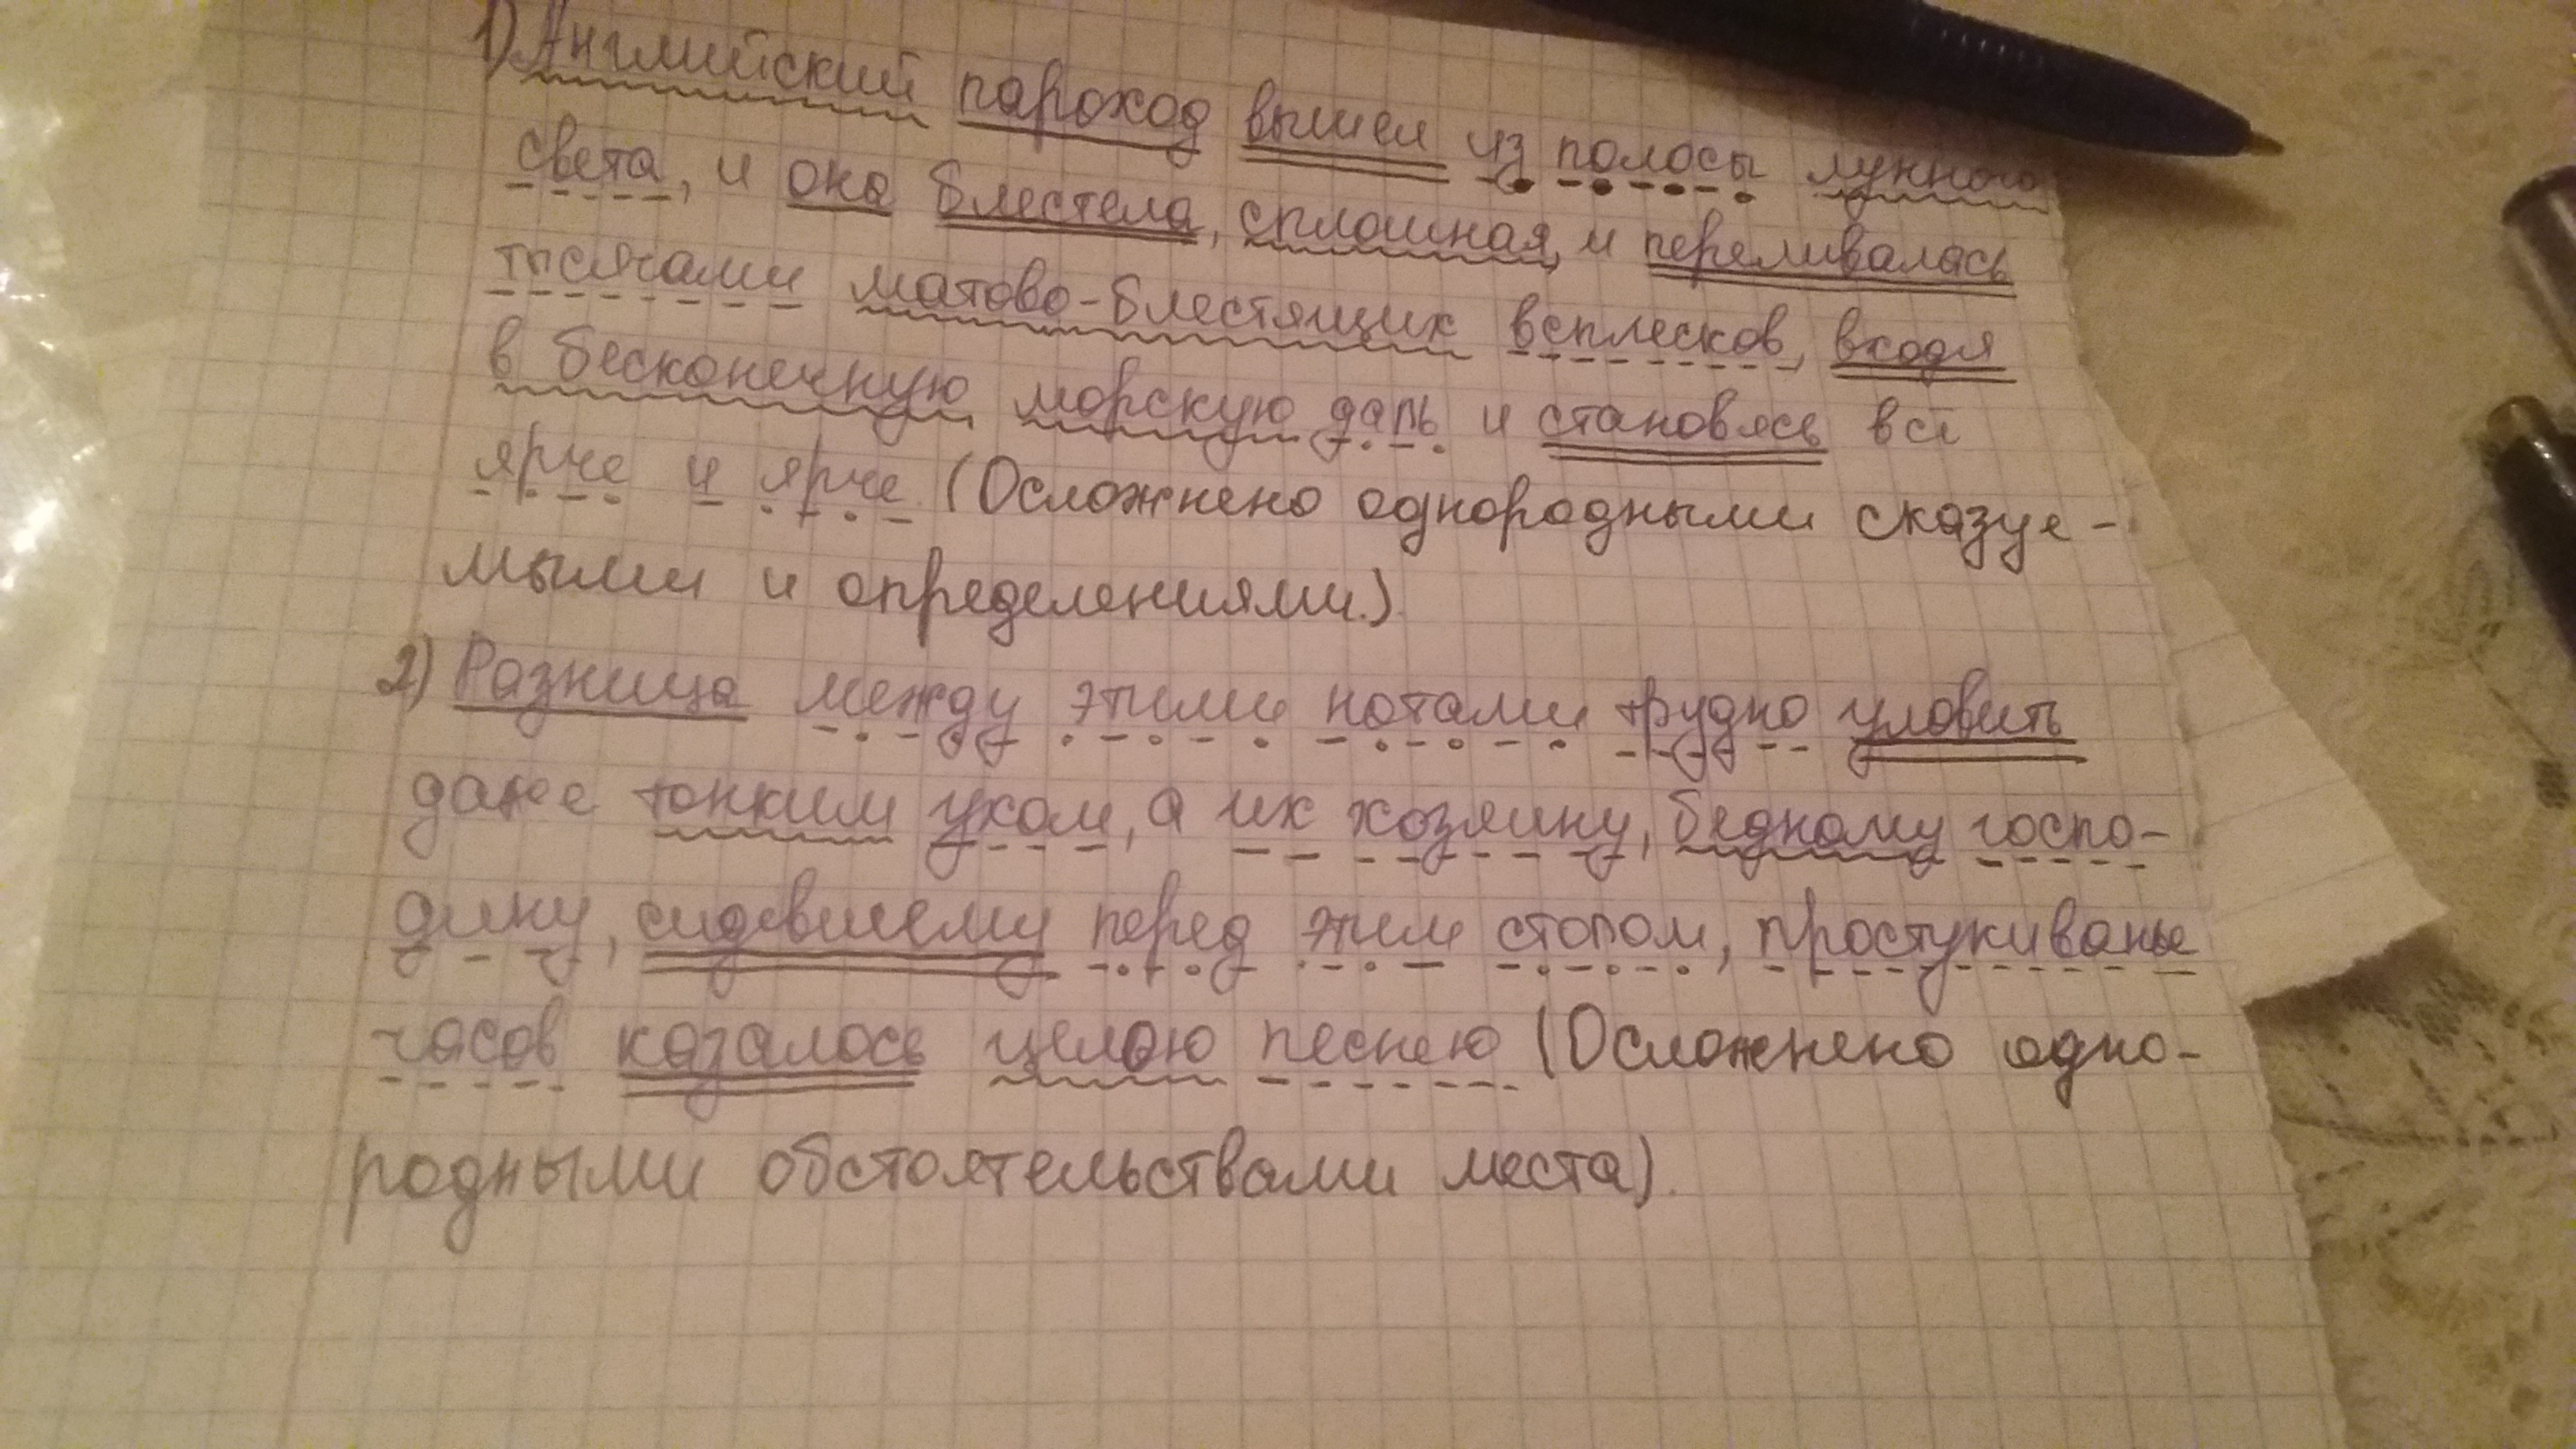 1) Английский пароход вышел из полосы лунного
света, и она блестела, сплошная, и переливалась
тысячами матово-блестящих всплесков, входя
в бесконечную морскую даль и становясь всё
ярче и ярче (Осложнено однородными сказуе-
мыми и определениями.).
2) Разница между этими нотами трудно уловить
даже тонким ухом, а их хозяину, бедному госпо-
дину, сидевшему перед этим столом, простукиванье
часов казалось целою песнею (Осложнено одно-
родными обстоятельствами места).